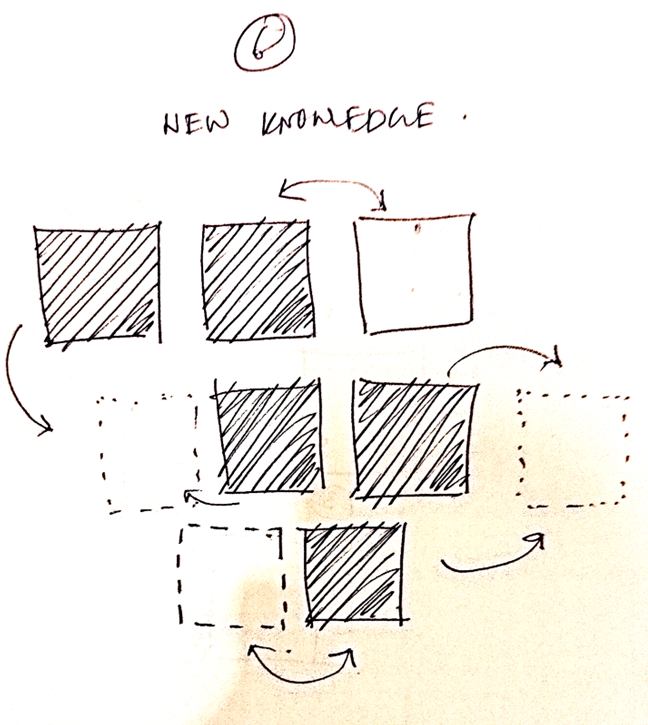 NEW KNOWLEDGE.